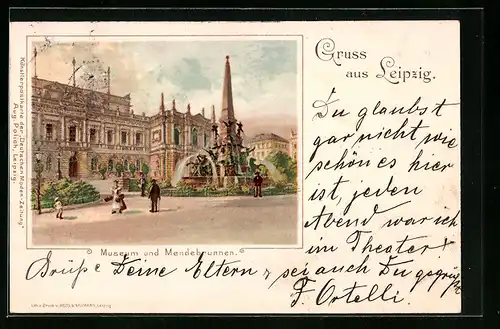 Künstlerpostkarte der "Deutschen Moden-Zeitung"
Aug. Polich, Leipzig.
Gruss
aus Leipzig.
Du glaubst
gar nicht wie
schön es hier
ist, jeden
Abend war ich
im Theater!
Museum und Mendebrunnen.
Grüße Deine Eltern & sei auch Du gegrüßt
F. Ortelli.